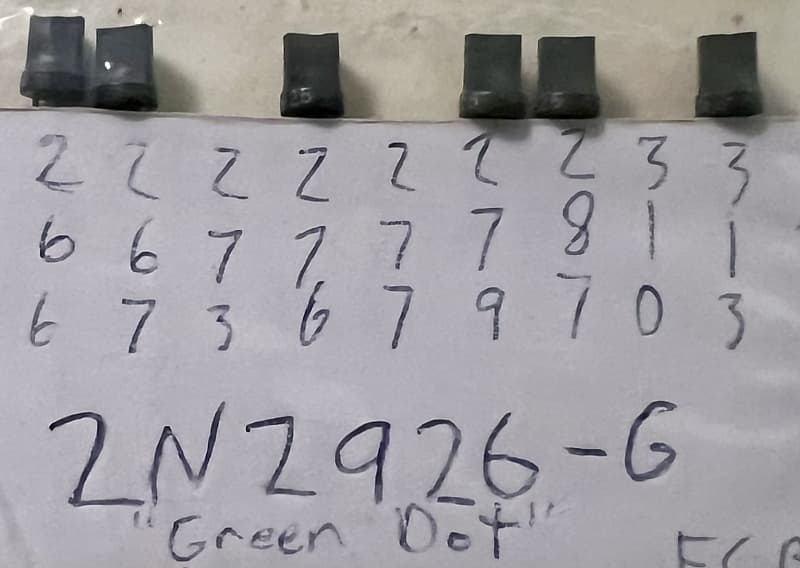 2 2 2 2 2 2 2 3 3
6 6 7 7 7 7 8 1 1
6 7 3 6 7 9 7 0 3
2N2926-G
"Green Dot"